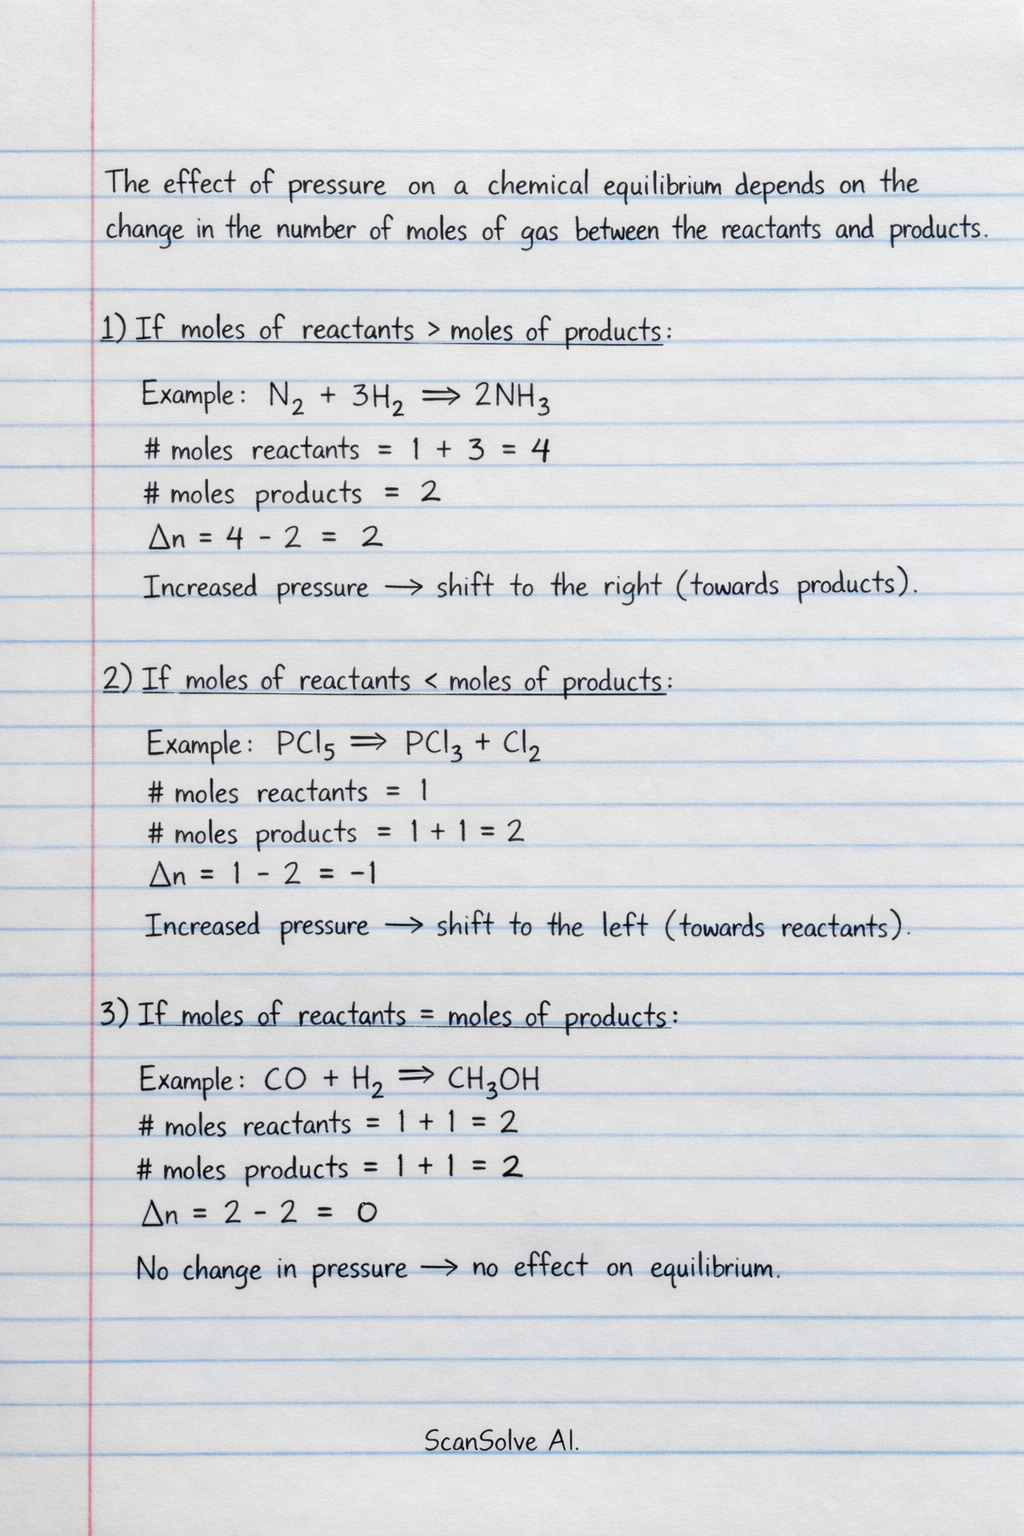 The effect of pressure on a chemical equilibrium depends on the
change in the number of moles of gas between the reactants and products.
1) If moles of reactants > moles of products:
Example: N₂ + 3H₂ ⇒ 2NH₃
# moles reactants = 1 + 3 = 4
# moles products = 2
Δn = 4 - 2 = 2
Increased pressure → shift to the right (towards products).
2) If moles of reactants < moles of products:
Example: PCl₅ ⇒ PCl₃ + Cl₂
# moles reactants = 1
# moles products = 1 + 1 = 2
Δn = 1 - 2 = -1
Increased pressure → shift to the left (towards reactants).
3) If moles of reactants = moles of products:
Example: CO + H₂ ⇒ CH₃OH
# moles reactants = 1 + 1 = 2
# moles products = 1 + 1 = 2
Δn = 2 - 2 = 0
No change in pressure → no effect on equilibrium.
ScanSolve AI.